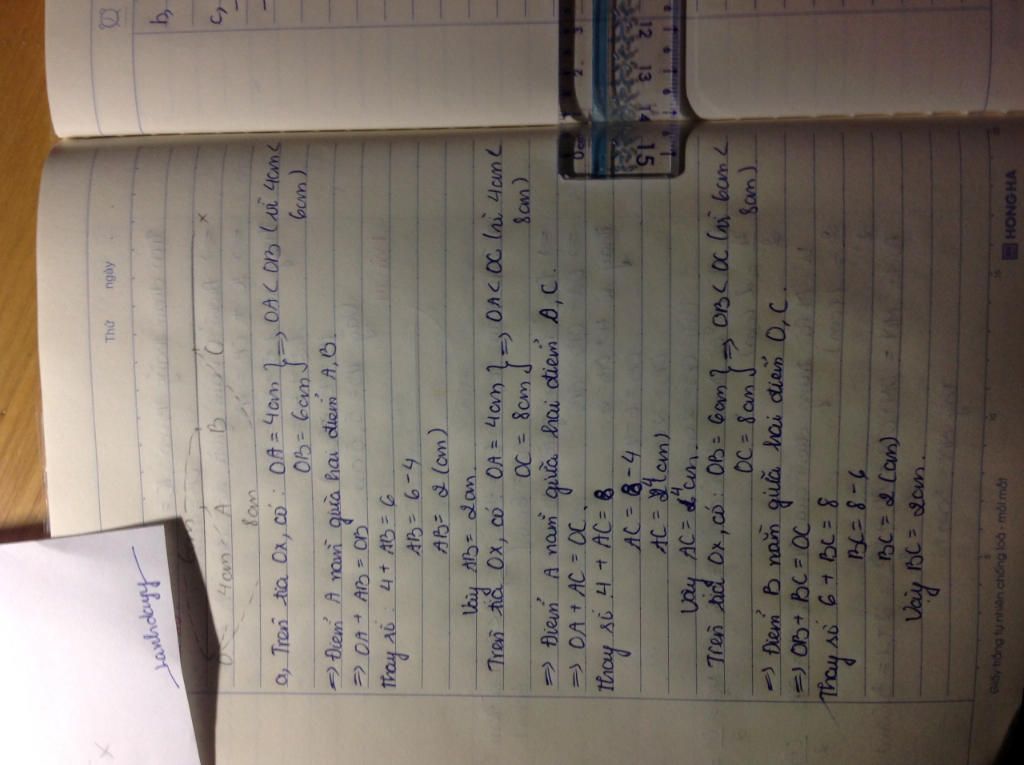 Thứ ngày
4cm A B C x
8cm
a, Trên tia Ox, có : OA = 4cm } => OA < OB (vì 4cm <
OB = 6cm 6cm)
=> Điểm A nằm giữa hai điểm A, B.
=> OA + AB = OB
Thay số : 4 + AB = 6
AB = 6 - 4
AB = 2 (cm)
Vậy AB = 2cm.
Trên tia Ox, có : OA = 4cm } => OA < OC (vì 4cm <
OC = 8cm 8cm)
=> Điểm A nằm giữa hai điểm A, C.
=> OA + AC = OC.
Thay số 4 + AC = 8
AC = 8 - 4
AC = 4 (cm)
Vậy AC = 4cm.
Trên tia Ox, có : OB = 6cm } => OB < OC (vì 6cm <
OC = 8cm 8cm)
=> Điểm B nằm giữa hai điểm O, C.
=> OB + BC = OC
Thay số 6 + BC = 8
BC = 8 - 6
BC = 2 (cm)
Vậy BC = 2cm.
Giấy trắng tự nhiên chống loá - mỏi mắt
HONG HA
b,
c,
0 1 2 3
12 13 14 15